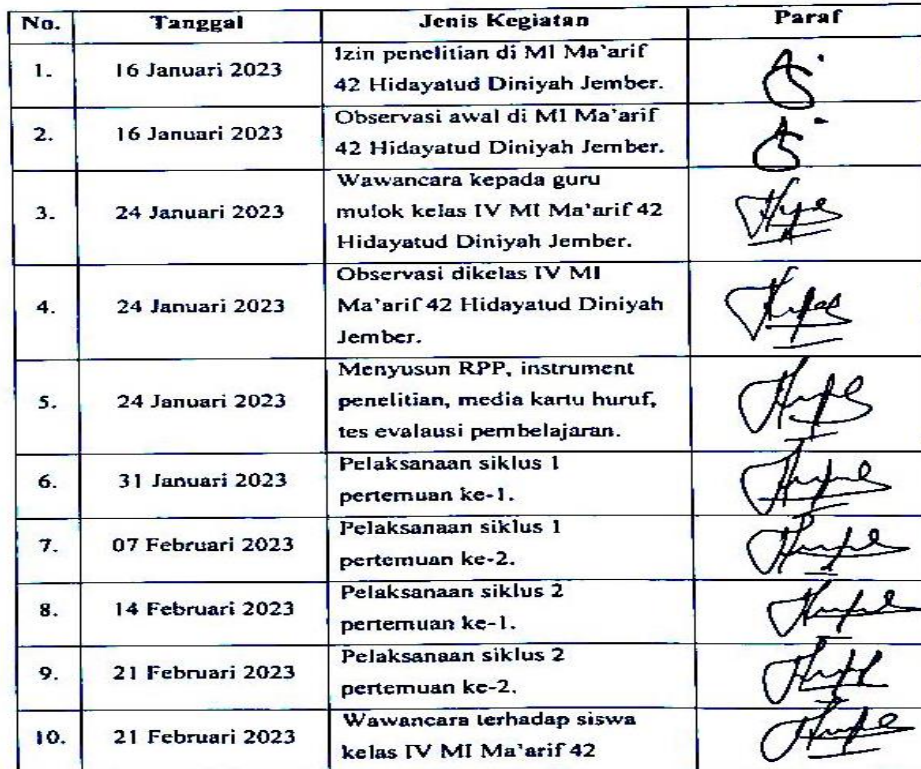 No. Tanggal Jenis Kegiatan Paraf
1. 16 Januari 2023 Izin penelitian di MI Ma'arif
42 Hidayatud Diniyah Jember.
2. 16 Januari 2023 Observasi awal di MI Ma'arif
42 Hidayatud Diniyah Jember.
Wawancara kepada guru
3. 24 Januari 2023 mulok kelas IV MI Ma'arif 42
Hidayatud Diniyah Jember.
Observasi dikelas IV MI
4. 24 Januari 2023 Ma'arif 42 Hidayatud Diniyah
Jember.
Menyusun RPP, instrument
5. 24 Januari 2023 penelitian, media kartu huruf,
tes evalausi pembelajaran.
6. 31 Januari 2023 Pelaksanaan siklus 1
pertemuan ke-1.
7. 07 Februari 2023 Pelaksanaan siklus 1
pertemuan ke-2.
8. 14 Februari 2023 Pelaksanaan siklus 2
pertemuan ke-1.
9. 21 Februari 2023 Pelaksanaan siklus 2
pertemuan ke-2.
10. 21 Februari 2023 Wawancara terhadap siswa
kelas IV MI Ma'arif 42